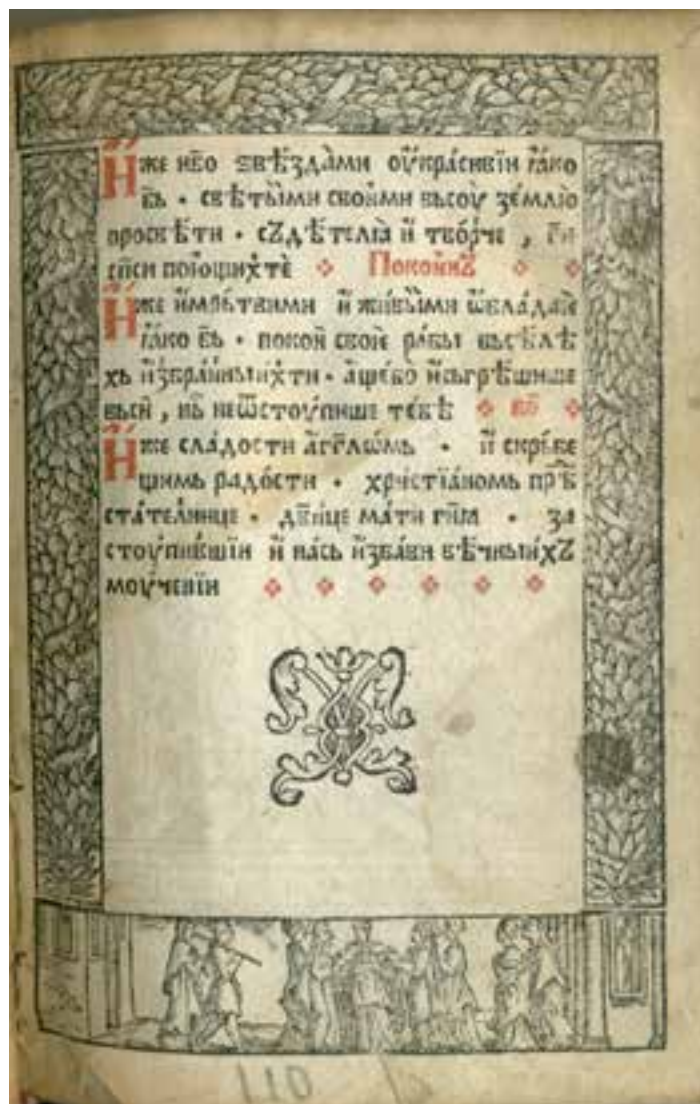 Иже нб҃о ѕвѣздами оукрасивїи ꙗко
бь҃ · свѣтыими своими вьсоу землю
просвѣти · съдѣтелю и творче , ги҃
сп҃си поющихте ❖ Покоинъ ❖ ❖
Иже имрьтвими и живыими ѡбладаѥ
ꙗко бь҃ · покои своѥ рабы вьсѣлѣ
хь избранныихти · аще бо и сьгрѣшише
вьси , нь не ѿстоупише тебѣ ❖ бо҃ ❖
Иже сладости аг҃глѡмь · и скрьбе
щимь радости · христїаномь прѣ҃
стателнице · дв҃ице мати гн҃ꙗ · за
стоупившїи и нась избави вѣчныихъ
моученїи ❖ ❖ ❖ ❖ ❖ ❖
110